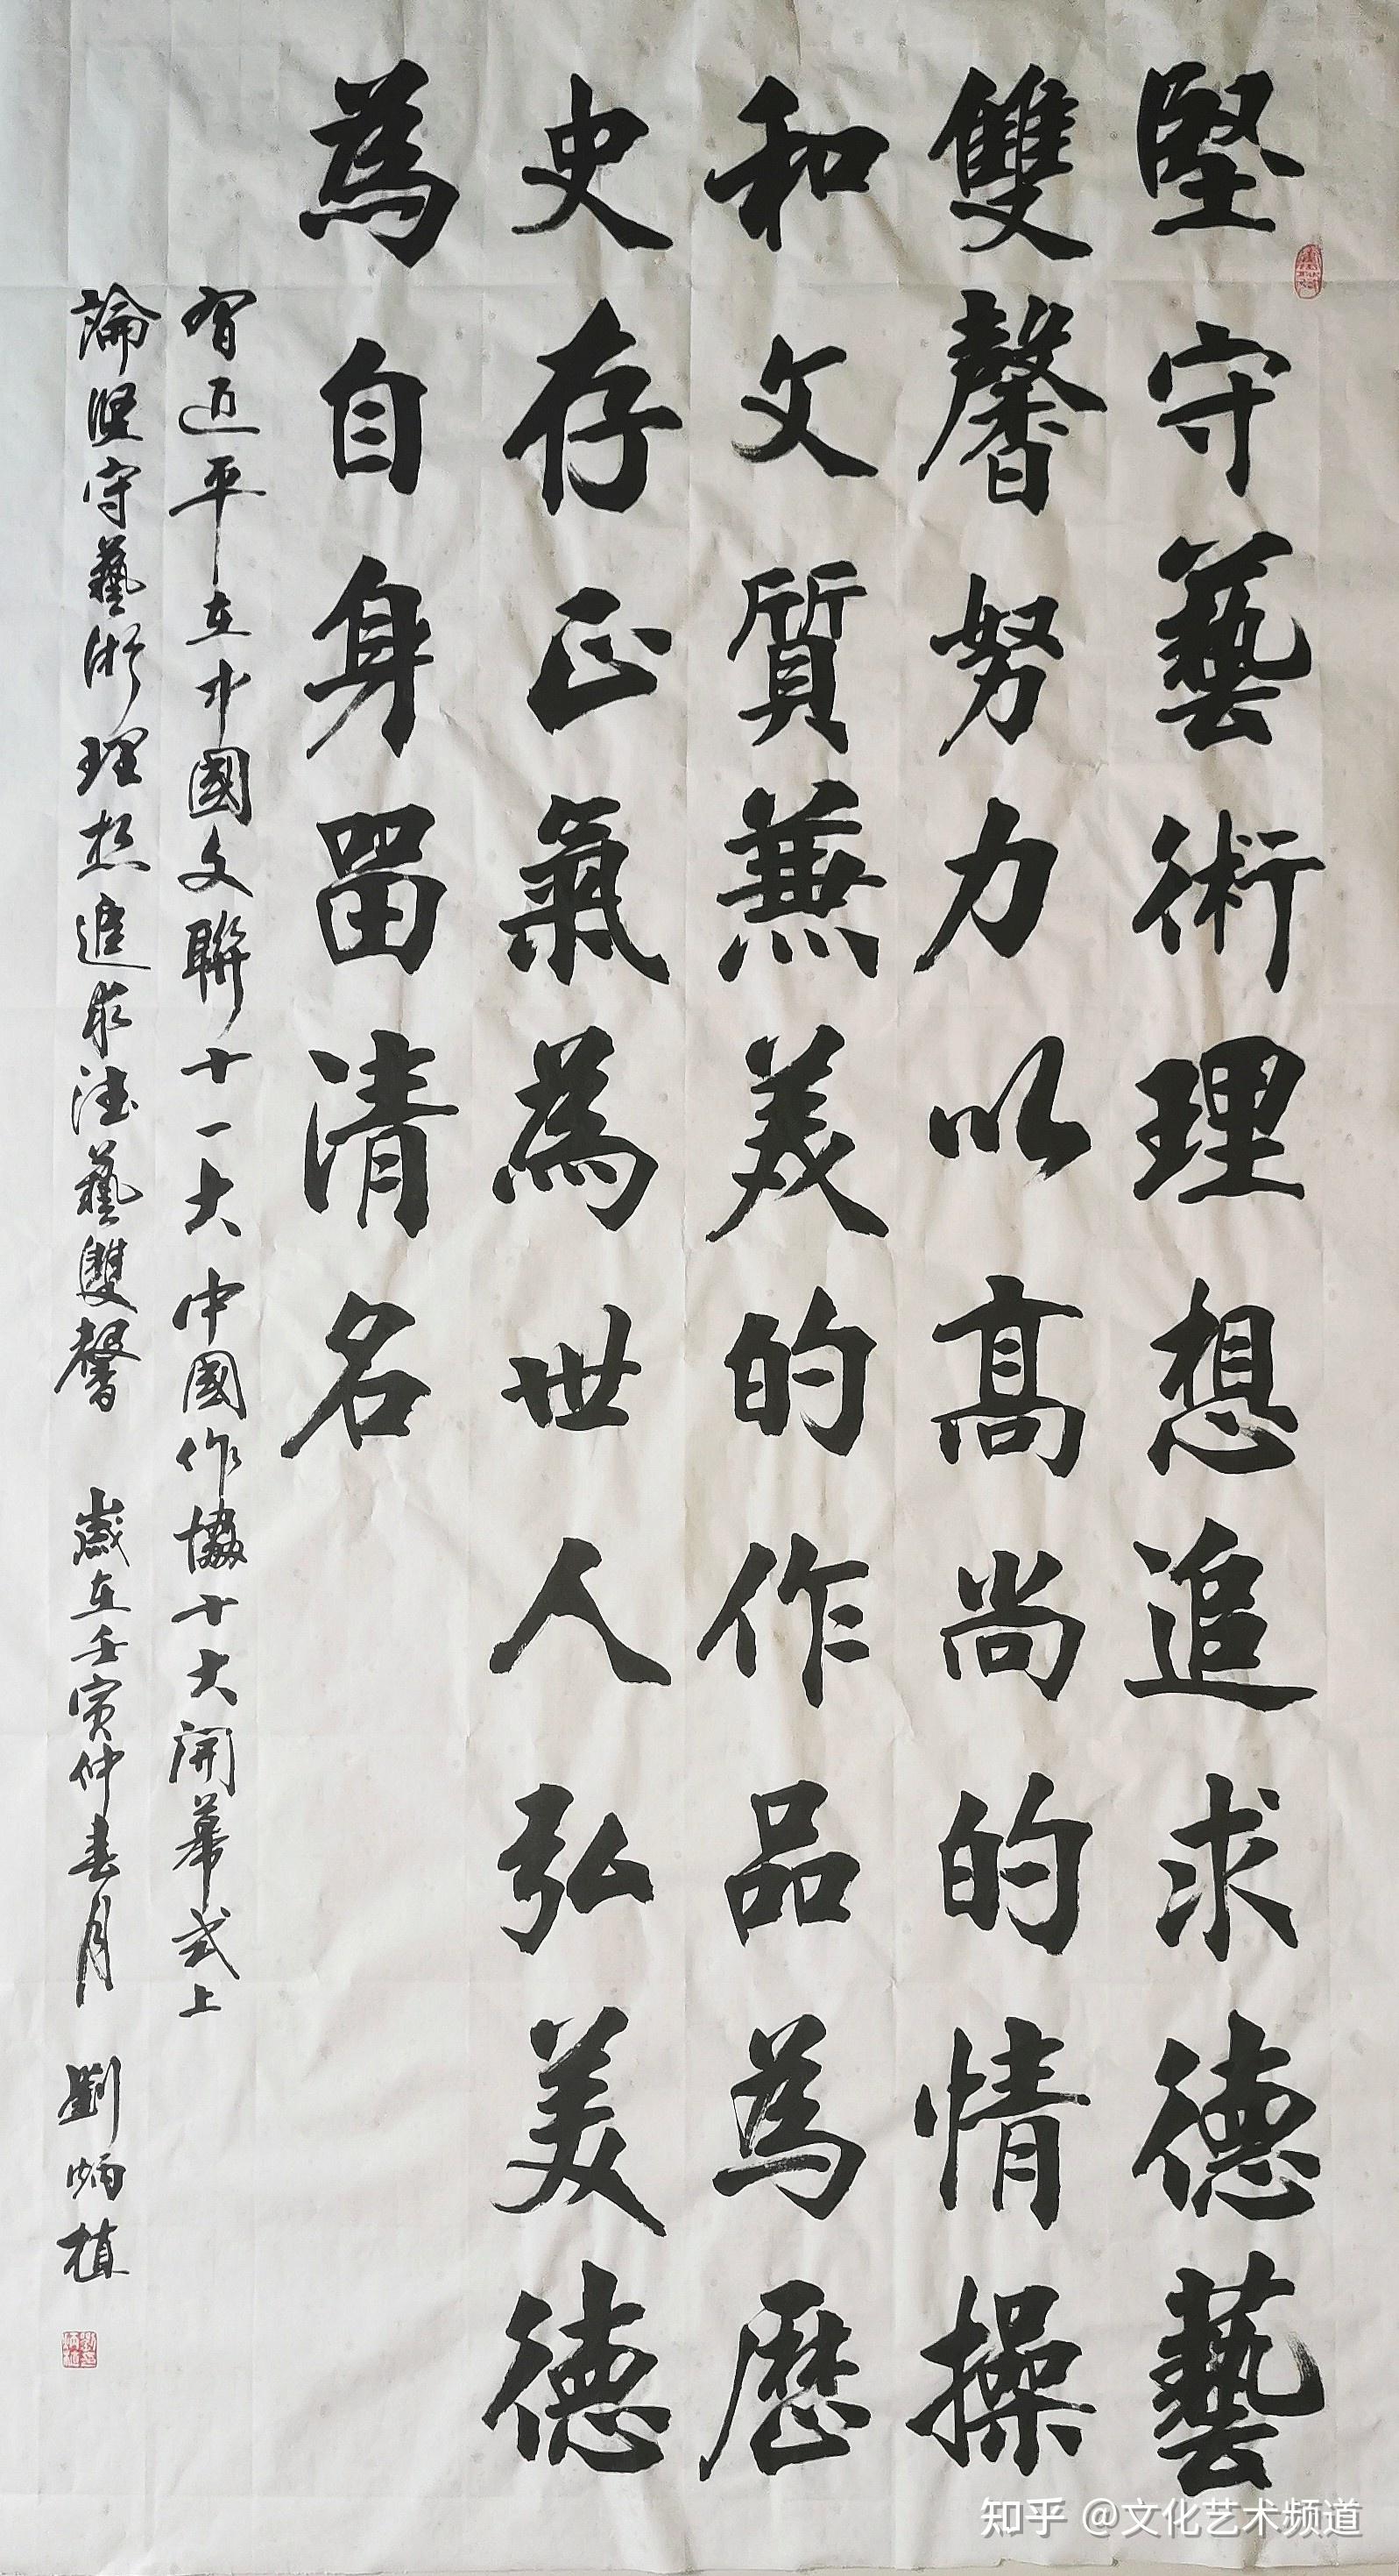 堅守藝術理想追求德藝
雙馨努力以高尚的情操
和文質兼美的作品為歷
史存正氣為世人弘美德
為自身留清名
習近平在中國文聯十一大中國作協十大開幕式上
論堅守藝術理想追求德藝雙馨 歲在壬寅仲春月 劉炳植
知乎 @文化艺术频道